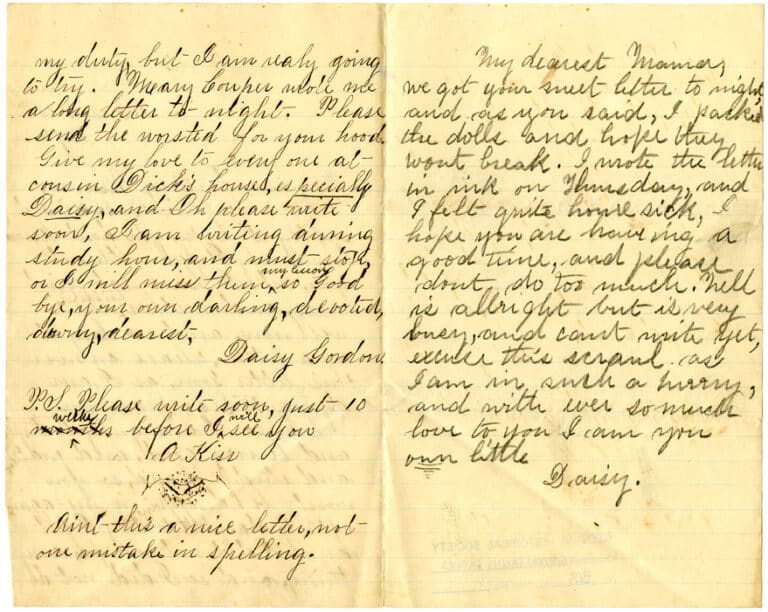 my duty, but I am realy going
to try. Meary Couper wrote me
a long letter to night. Please
send the worsted for your hood.
Give my love to every one at
cousin Dick's house, especially
Daisy, and Oh please write
soon, I am writing during
study hour, and must stop,
or I will miss them, my lessons so Good
bye, your own darling, devoted,
dearest,
Daisy Gordon
P.S. Please write soon, just 10
months weeks before I will see you
A Kiss
Aint this a nice letter, not
one mistake in spelling.
My dearest Mama,
we got your sweet letter to night,
and as you said, I packed
the dolls and hope they
wont break. I wrote the letter
in ink on Thursday, and
I felt quite home sick, I
hope you are having a
good time, and please
dont, do too much. Nell
is allright but is very
busy, and cant write yet,
excuse this scrawl as
I am in such a hurry,
and with ever so much
love to you I am you
own little
Daisy.
GEORGIA HISTORICAL SOCIETY